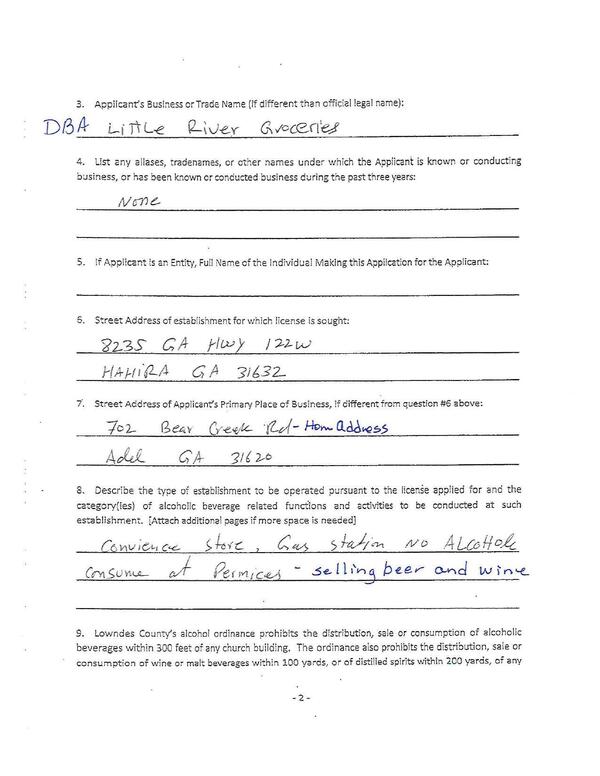 3. Applicant's Business or Trade Name (if different than official legal name):
DBA Little River Groceries
4. List any aliases, tradenames, or other names under which the Applicant is known or conducting
business, or has been known or conducted business during the past three years:
None
5. If Applicant is an Entity, Full Name of the Individual Making this Application for the Applicant:
6. Street Address of establishment for which license is sought:
8235 GA HWY 122W
HAHIRA GA 31632
7. Street Address of Applicant's Primary Place of Business, if different from question #6 above:
702 Bear Creek Rd - Hom Address
Adel GA 31620
8. Describe the type of establishment to be operated pursuant to the license applied for and the
category(ies) of alcoholic beverage related functions and activities to be conducted at such
establishment. [Attach additional pages if more space is needed]
Convience store, Gas station NO ALCOHOLE
Consume at Permices - selling beer and wine
9. Lowndes County's alcohol ordinance prohibits the distribution, sale or consumption of alcoholic
beverages within 300 feet of any church building. The ordinance also prohibits the distribution, sale or
consumption of wine or malt beverages within 100 yards, or of distilled spirits within 200 yards, of any
- 2 -